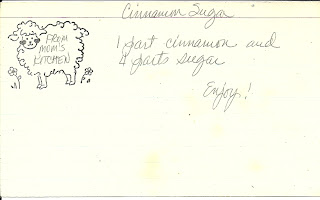 Cinnamon Sugar
FROM
MOM'S
KITCHEN
1 part cinnamon and
4 parts sugar
Enjoy!